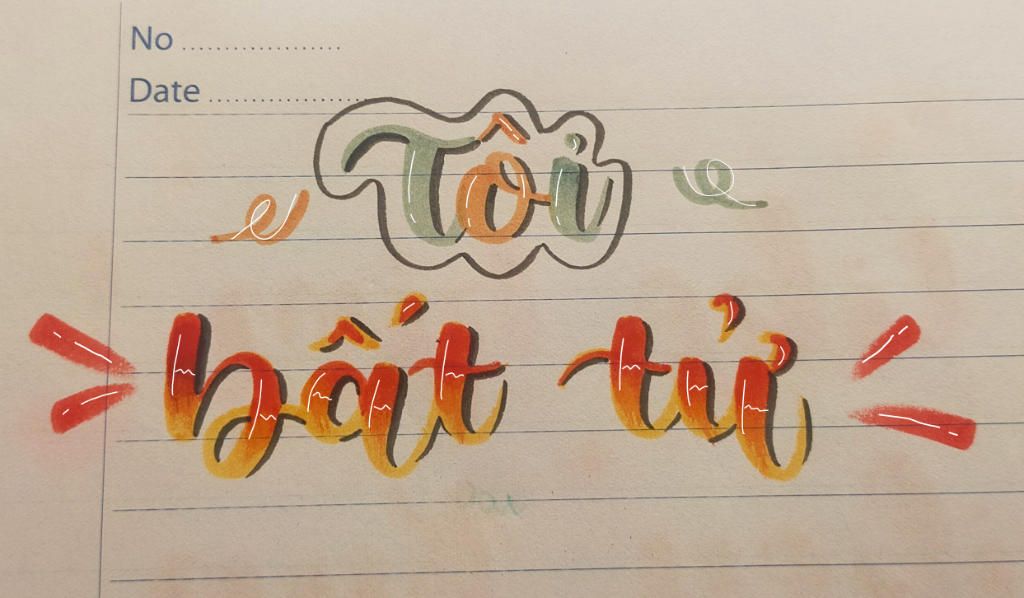 No ...................
Date ...................
Tôi
bất tử